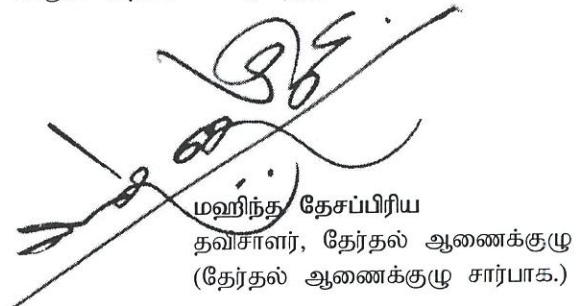 மஹிந்த தேசப்பிரிய
தவிசாளர், தேர்தல் ஆணைக்குழு
(தேர்தல் ஆணைக்குழு சார்பாக.)